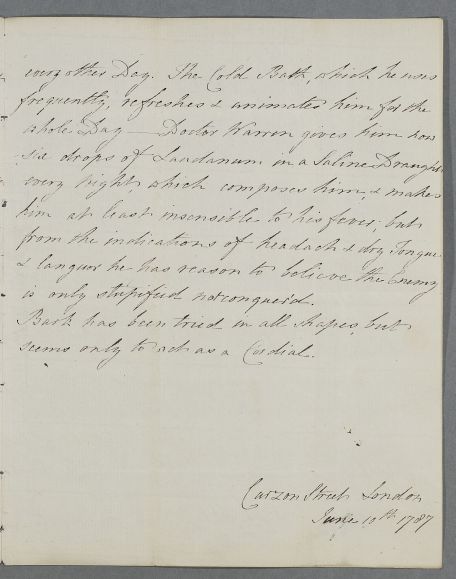 every other Day. The Cold Bath, which he uses
frequently, refreshes & animates him for the
whole Day — Doctor Warren gives him now
six drops of Laudanum in a Saline Draught
every Night which composes him, & makes
him at least insensible to his fever, but
from the indications of headach & dry Tongue
& languor he has reason to believe the Enemy
is only stupified not conquer'd.
Bark has been tried in all shapes, but
seems only to act as a Cordial.
Curzon Street London
June 10th 1787